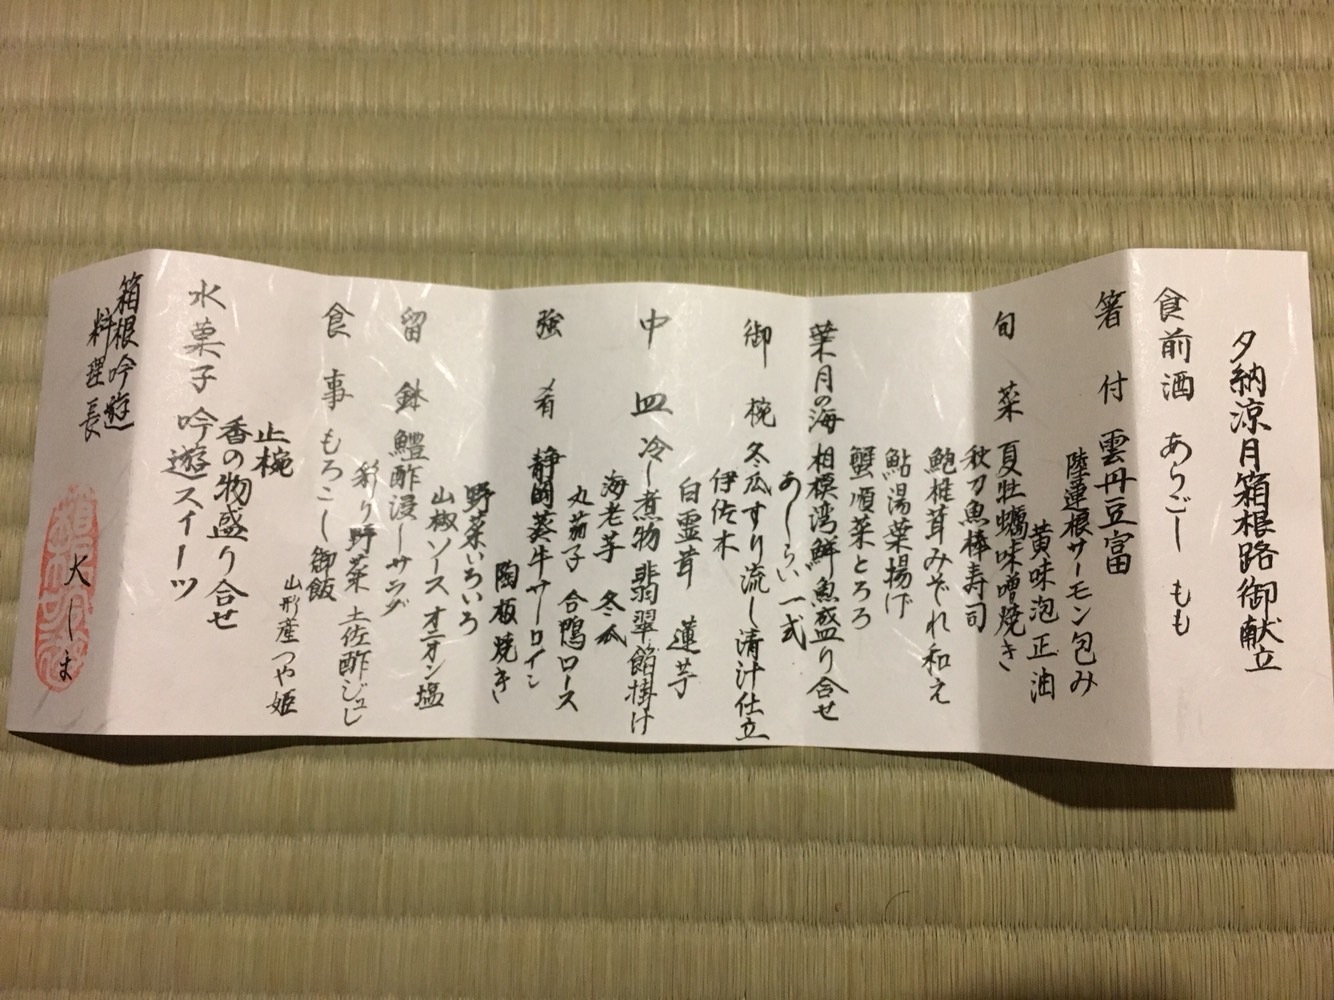 夕納涼月箱根路御献立
食前酒 あらごし もも
箸付 雲丹豆富
陸蓮根サーモン包み
黄味泡 正油
旬菜 夏牡蠣味噌焼き
秋刀魚棒寿司
鮑椎茸みぞれ和え
鮎湯葉揚げ
蟹順菜とろろ
葉月の海 相模湾鮮魚盛り合せ
あしらい一式
御椀 冬瓜すり流し清汁仕立
伊佐木
白霊茸 蓮芋
中皿 冷し煮物 翡翠餡掛け
海老芋 冬瓜
丸茄子 合鴨ロース
強肴 静岡蒸牛サーロイン
陶板焼き
野菜いろいろ
山椒ソース オニオン塩
留鉢 鱧酢浸しサラダ
彩り野菜 土佐酢ジュレ
食事 もろこし御飯
山形産つや姫
止椀
香の物盛り合せ
水菓子 吟遊スイーツ
箱根吟遊
料理長
大しま